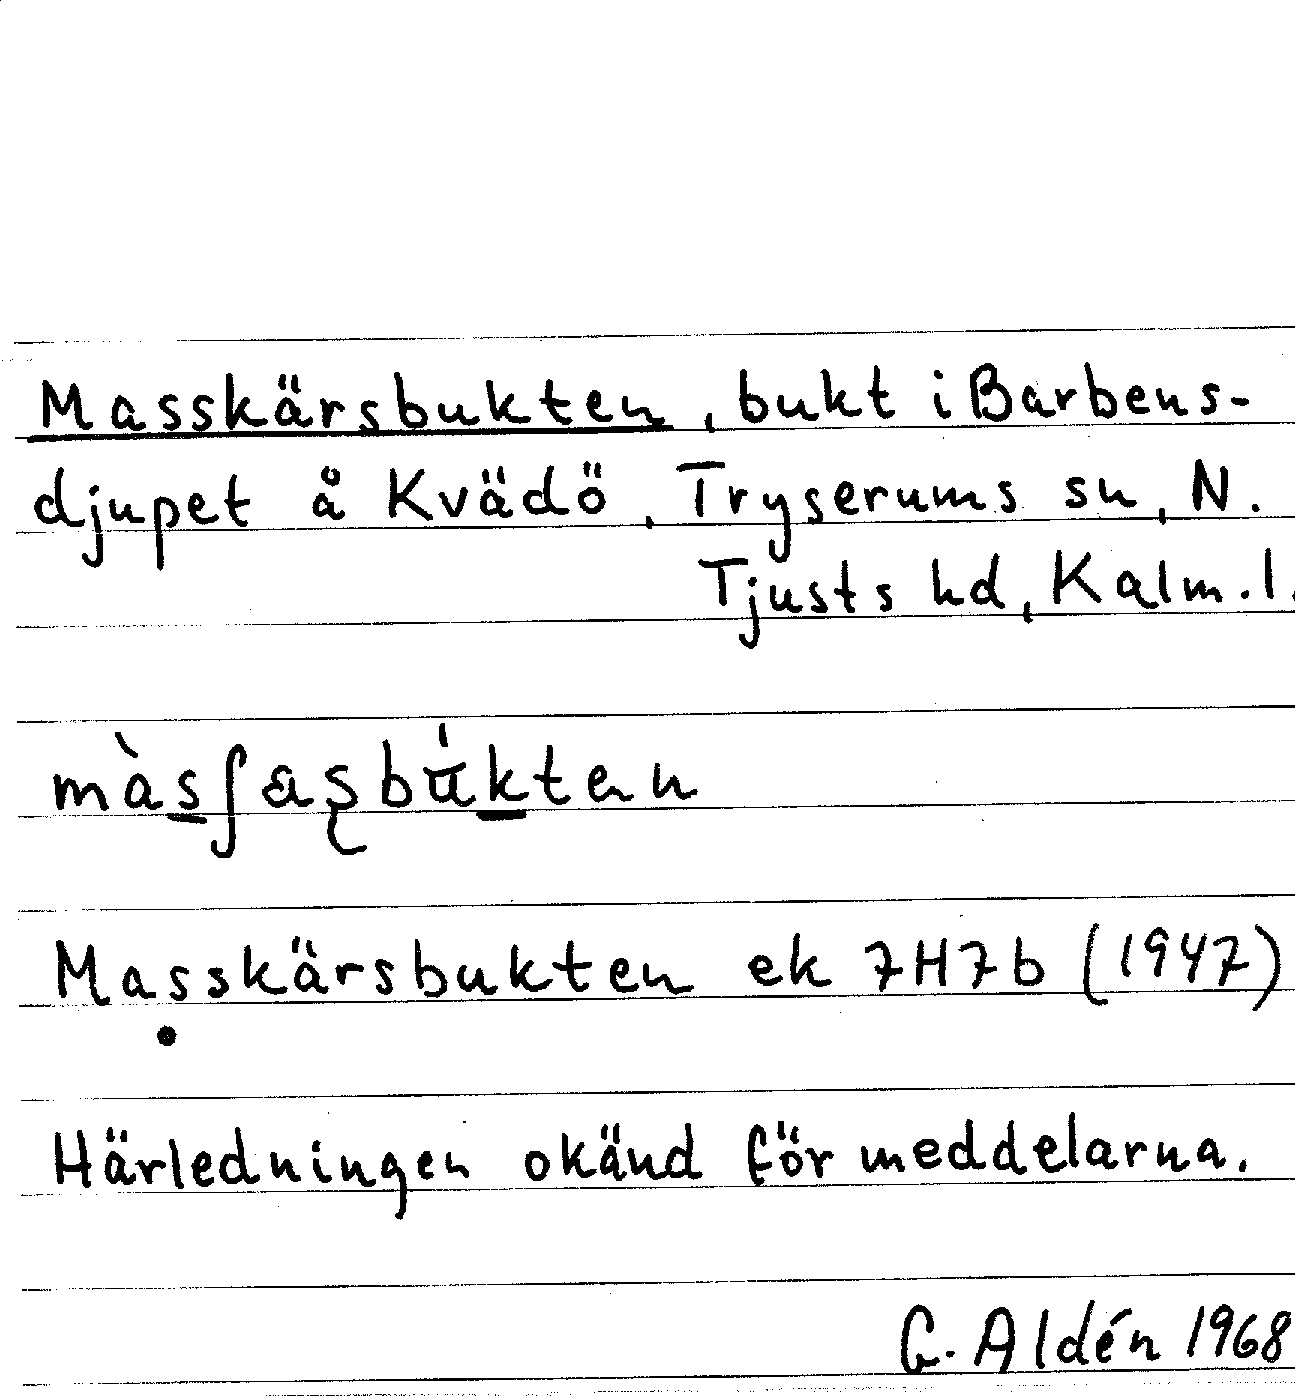 Masskärsbukten, bukt i Barbens-
djupet å Kvädö, Tryserums sn, N.
Tjusts hd, Kalm. l.
màsʃasbu̇ktən
Masskärsbukten ek 7H7b (1947)
Härledningen okänd för meddelarna.
G. Aldén 1968